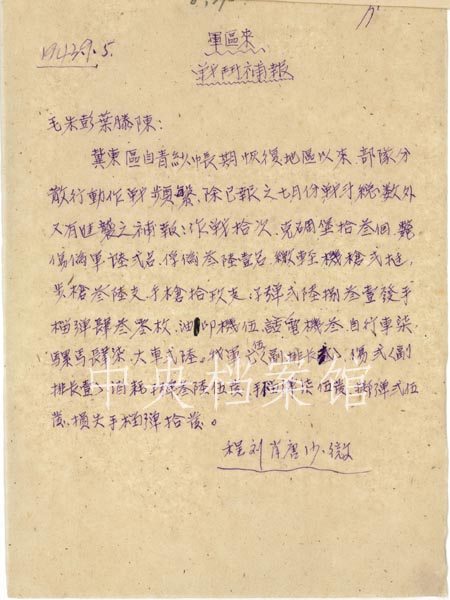 軍區來
1943.9.5.
戰鬥補報
毛朱彭葉滕陳：
冀東區自青紗帳期恢復地區以來部隊分
散行動作戰頻繁、除已報之七月份戰爭總數外
又有 之補報：作戰拾次、克碉堡拾叁個、斃
傷偽軍陸弍名、俘偽叁陸壹名、繳輕機槍弍挺、
步槍叁陸支、手槍拾玖支、子彈弍陸捌叁壹發手
榴彈肆叁零枚、油印機伍、話電機叁、自行車柒、
騾馬肆柒、大車弍陸。我軍亡伍（副排長 ）、傷弍（副
排長壹）消耗 叁陸伍發、手榴彈柒伍發、擲彈弍伍
發、損失手榴彈拾發。
程刘肖唐沙、微
中央档案馆